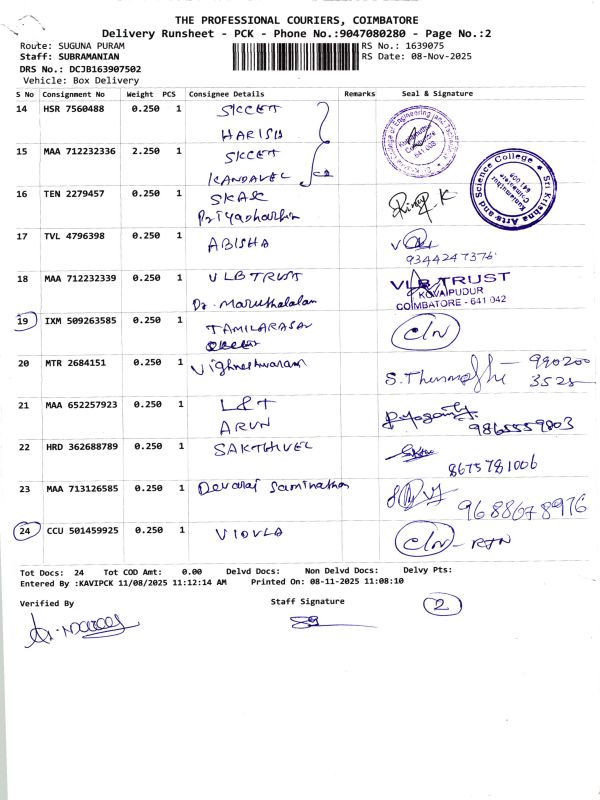 THE PROFESSIONAL COURIERS, COIMBATORE
Delivery Runsheet - PCK - Phone No.:9047080280 - Page No.:2
Route: SUGUNA PURAM RS No.: 1639075
Staff: SUBRAMANIAN RS Date: 08-Nov-2025
DRS No.: DCJB163907502
Vehicle: Box Delivery
S No Consignment No Weight PCS Consignee Details Remarks Seal & Signature
14 HSR 7560488 0.250 1 SKCET
HARISH
15 MAA 712232336 2.250 1 SKCET
KANDAVEL
641 008
Sri Krishna Arts and Science College
Kuniamuthur
Coimbatore
641 008
16 TEN 2279457 0.250 1 SKASC
Priyadharshin
17 TVL 4796398 0.250 1 ABISHA
9344247376
18 MAA 712232339 0.250 1 VLB TRUST
Dr. Maruthalalam
VLB TRUST
KOVAIPUDUR
COIMBATORE - 641 042
19 IXM 509263585 0.250 1 TAMILARASAN
C/N
20 MTR 2684151 0.250 1 Vighneshwaram
990200
3525
21 MAA 652257923 0.250 1 L&T
ARUN
9865559803
22 HRD 362688789 0.250 1 SAKTHIVEL
8675781006
23 MAA 713126585 0.250 1 Devaraj Saminathan
9688678976
24 CCU 501459925 0.250 1 VIOVLA
C/N - RTN
Tot Docs: 24 Tot COD Amt: 0.00 Delvd Docs: Non Delvd Docs: Delvy Pts:
Entered By :KAVIPCK 11/08/2025 11:12:14 AM Printed On: 08-11-2025 11:08:10
Verified By Staff Signature
2